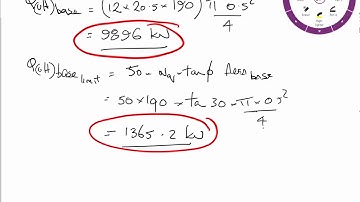 Q(ult)base = (12 × 20.5 × 190) π 0.5² / 4
= 9896 kN
Q(ult)base limit = 50 × Nq × tanφ Area base
= 50 × 190 × tan 30 × π × 0.5² / 4
= 1365.2 kN